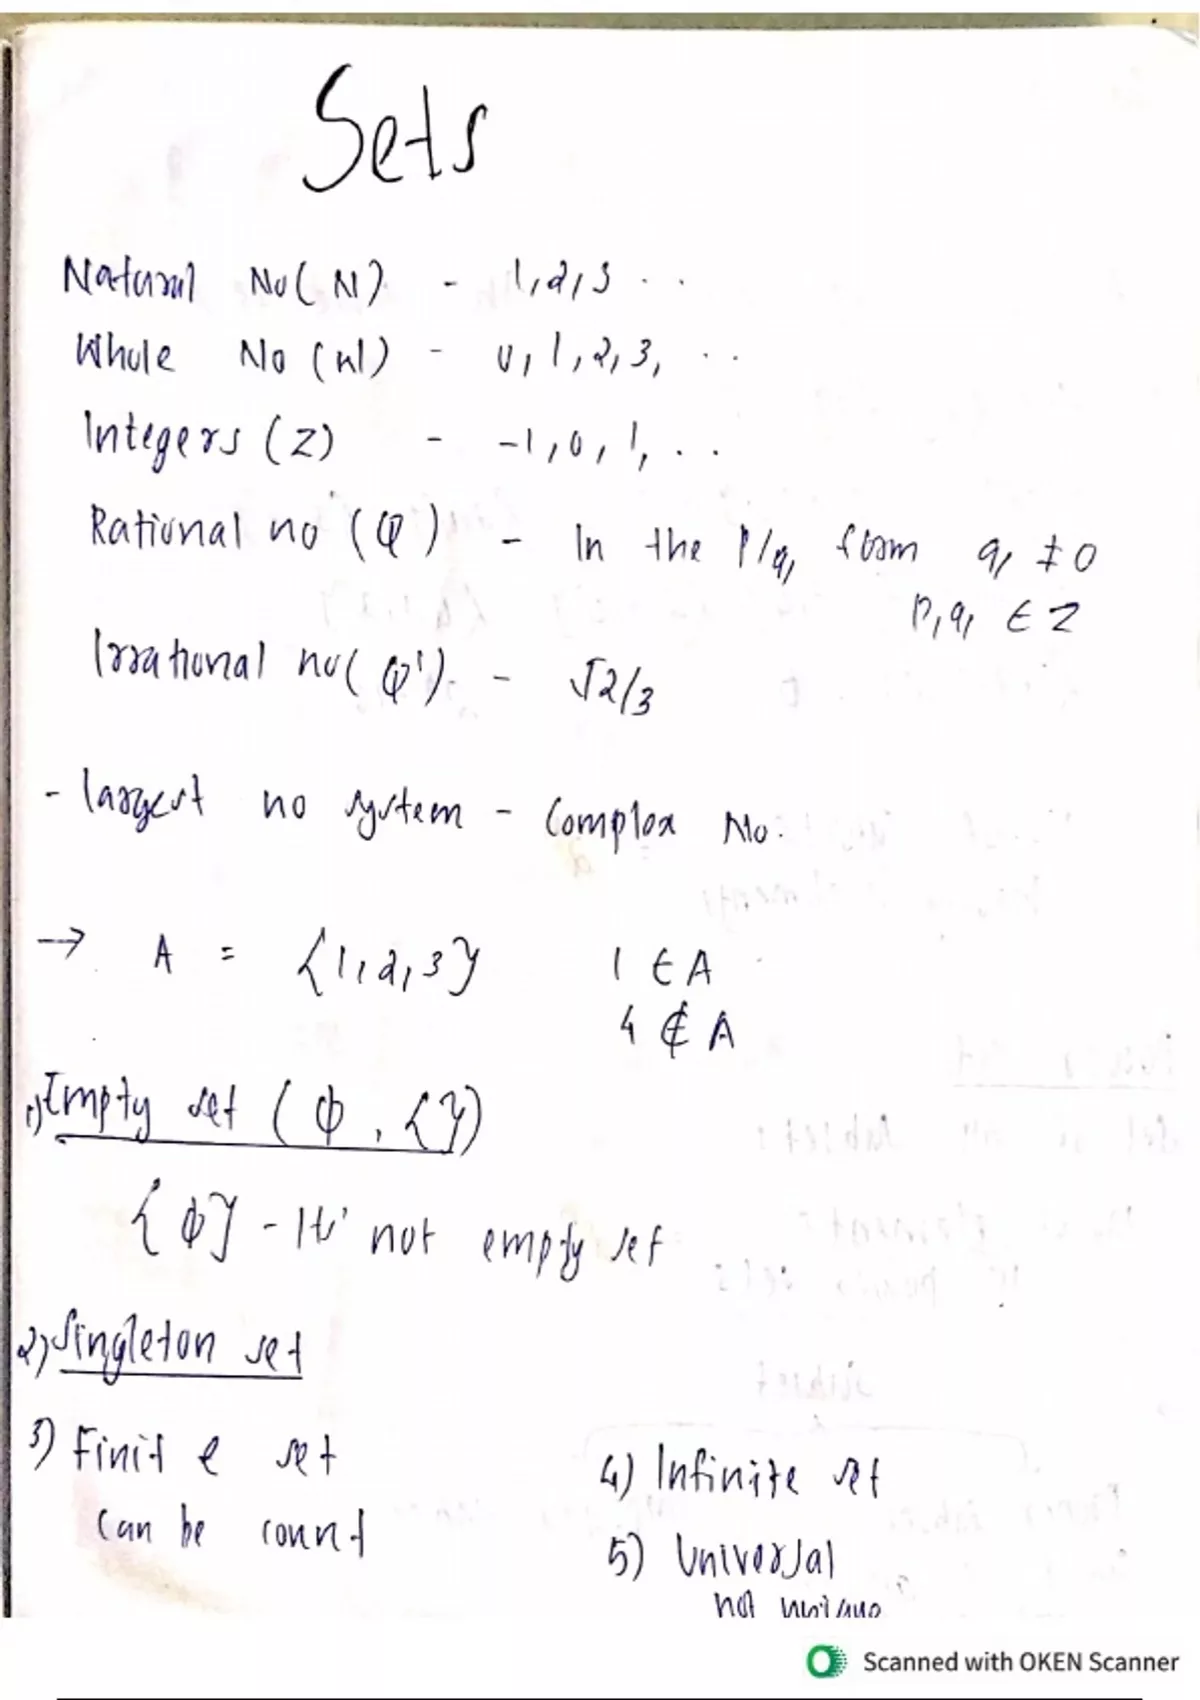 Sets
Natural No(N) - 1,2,3 ..
Whole No (W) - 0,1,2,3, ..
Integers (Z) - -1,0,1, ..
Rational no (Q) - In the P/q form q ≠ 0
p,q ∈ Z
Irrational no(Q') - √2/3
- largest no system - Complex No.
→ A = {1,2,3} 1 ∈ A
4 ∉ A
1) Empty set (ϕ, {})
{ϕ} - It' not empty set
2) Singleton set
3) Finite set
can be count
4) Infinite set
5) Universal
not unique
Scanned with OKEN Scanner